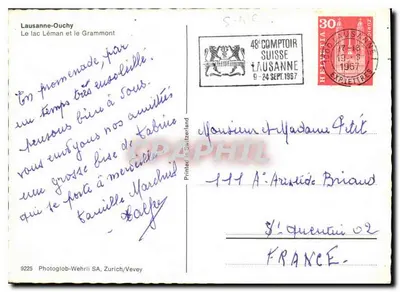 Lausanne-Ouchy
Le lac Léman et le Grammont
En promenade, par
un temps très ensoleillé
pensons bien à vous.
vous envoyons nos amitiés
une grosse bise de
qui se porte à merveille
famille
9225 Photoglob-Wehrli SA, Zurich/Vevey
Printed in Switzerland
48e COMPTOIR
SUISSE
LAUSANNE
9-24 SEPT. 1967
HELVETIA
30
LAUSANNE
1967
EXPEDITION
Monsieur et Madame Petit
111 A. Aristide Briand
St Quentin 02
FRANCE.